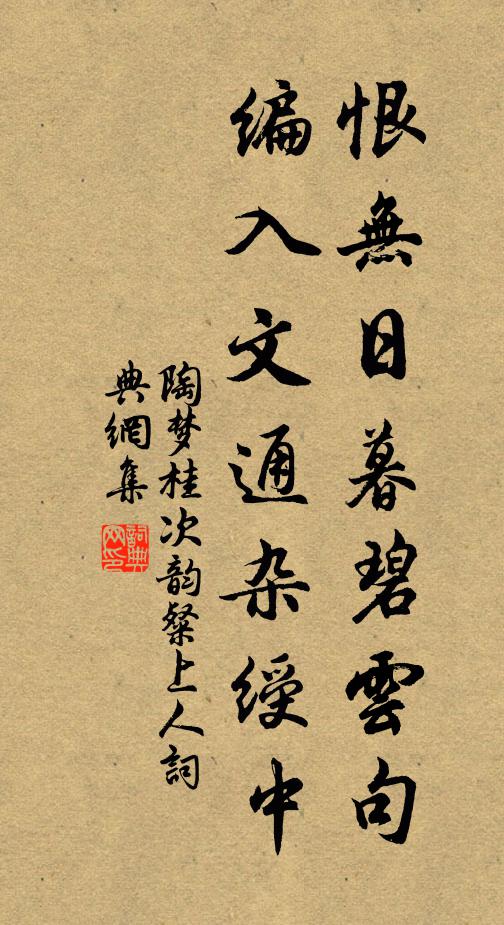 恨無日暮碧雲句
編入文通杂綬中
陶梦桂次韵粲上人詞
典網集
詞典
网印